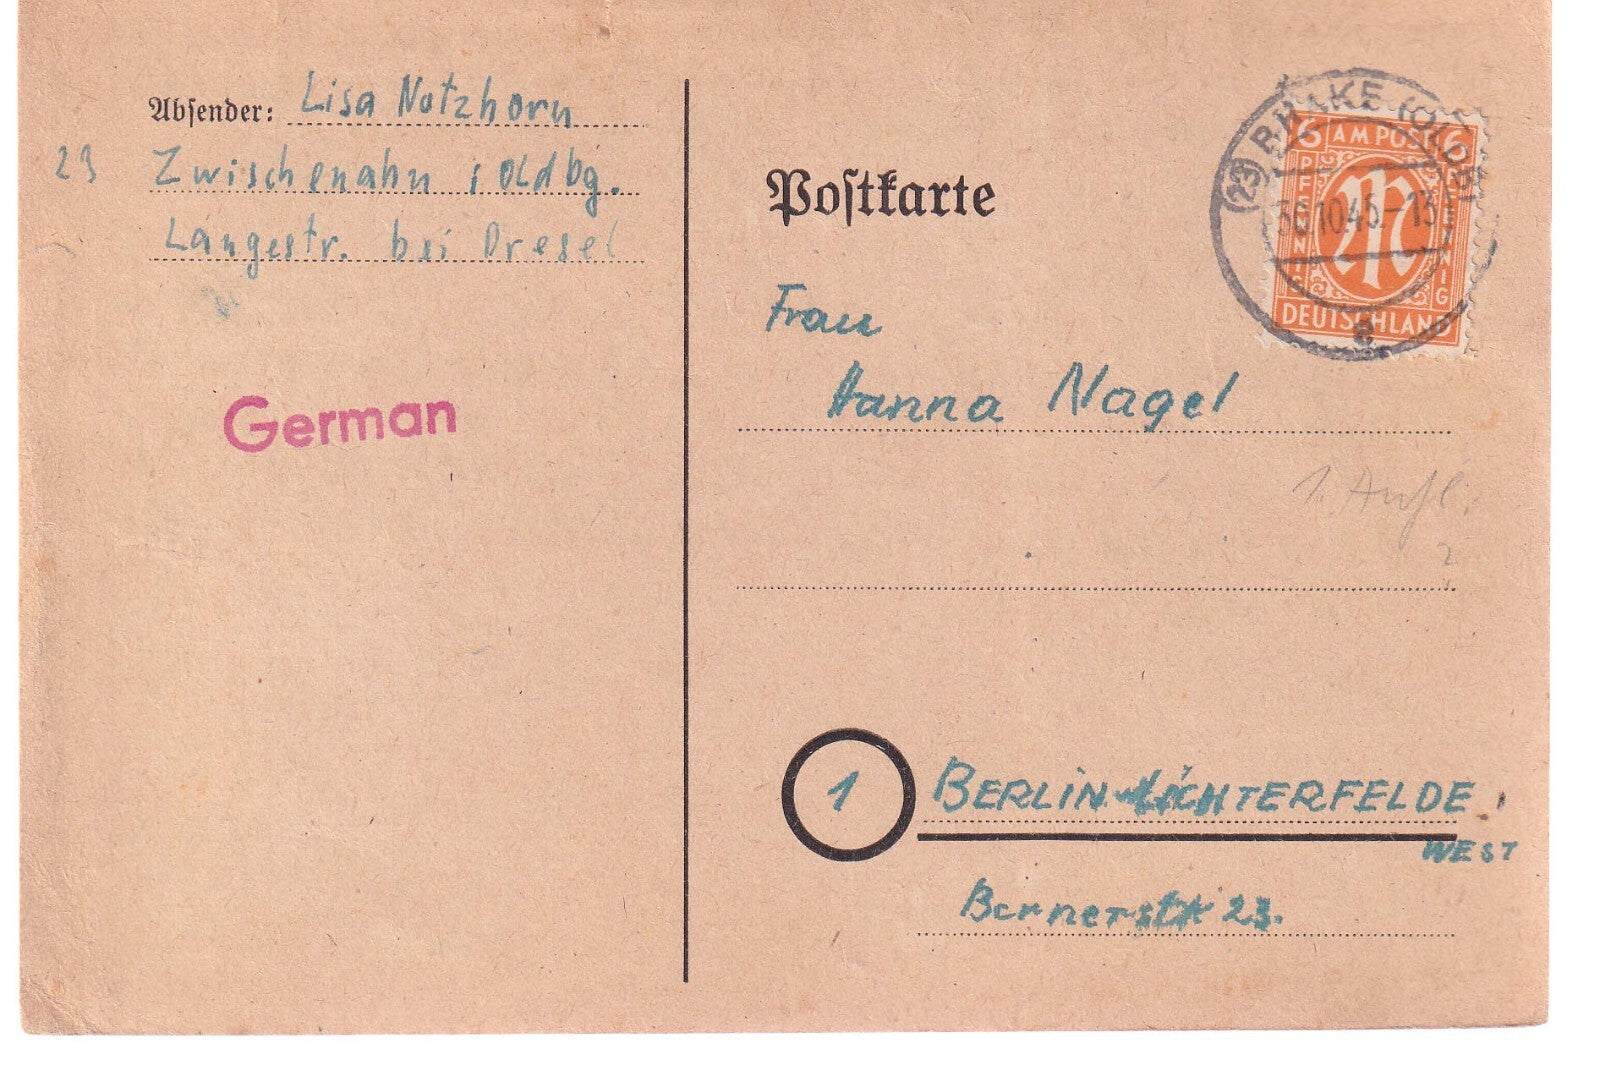 Absender: Lisa Notzhorn
23 Zwischenahn i Oldbg.
Langestr. bei Dresel
German
Postkarte
(23) BRAKE (OLDB)
30.10.45.-13
e
6 AM POST 6
PFENNIG
PFENNIG
DEUTSCHLAND
Frau
Hanna Nagel
1. Aufl.
1 BERLIN-LICHTERFELDE
WEST
Bernerstr 23.